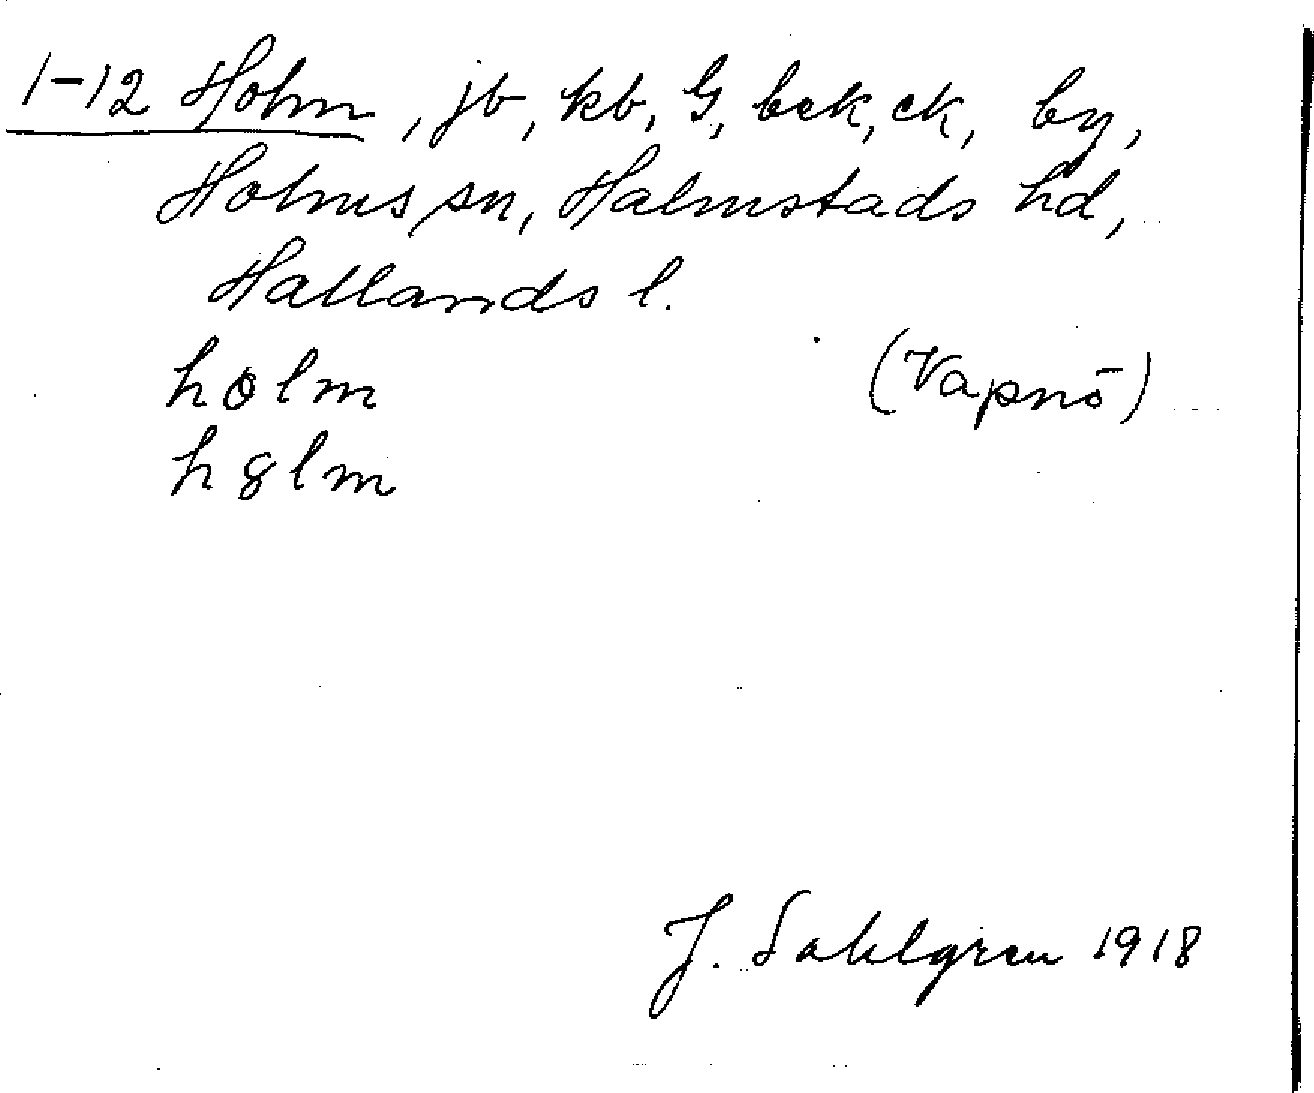 1-12 Holm, jb, kb, G, bek, ck, by,
Holms sn, Halmstads hd,
Hallands l.
holm (Vapnö)
h8lm
J. Sahlgren 1918